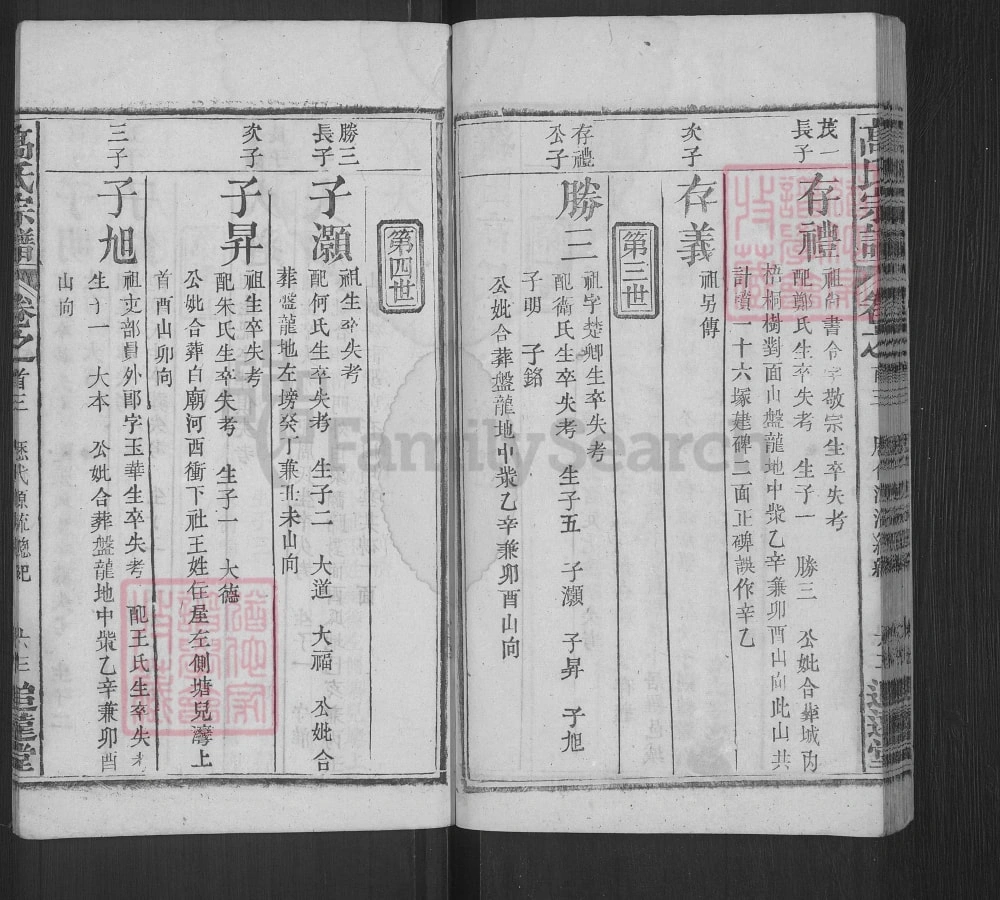 茂一長子
存禮
祖尚書令字敬宗生卒失考
配鄭氏生卒失考 生子一 勝三 公妣合葬城內
梧桐樹對面山盤龍地中崇乙辛兼卯酉山向此山共
計費一十六塚建碑二面正碑誤作辛乙
次子
存義
祖另傳
第三世
存禮公子
勝三
祖字楚卿生卒失考
配衛氏生卒失考 生子五 子灝 子昇 子旭
子明 子銘
公妣合葬盤龍地中崇乙辛兼卯酉山向
第四世
勝三長子
子灝
祖生卒失考
配何氏生卒失考 生子二 大道 大福 公妣合
葬盤龍地左塝癸丁兼丑未山向
次子
子昇
祖生卒失考
配朱氏生卒失考 生子一 大德
公妣合葬白廟河西衝下社王姓住屋左側塘兒灣上
首酉山卯向
三子
子旭
祖吏部員外郎字玉華生卒失考 配王氏生卒失考
生子一 大本 公妣合葬盤龍地中崇乙辛兼卯酉
山向
高氏宗譜 卷之首三 歷代源流總紀 六三 追遠堂
FamilySearch